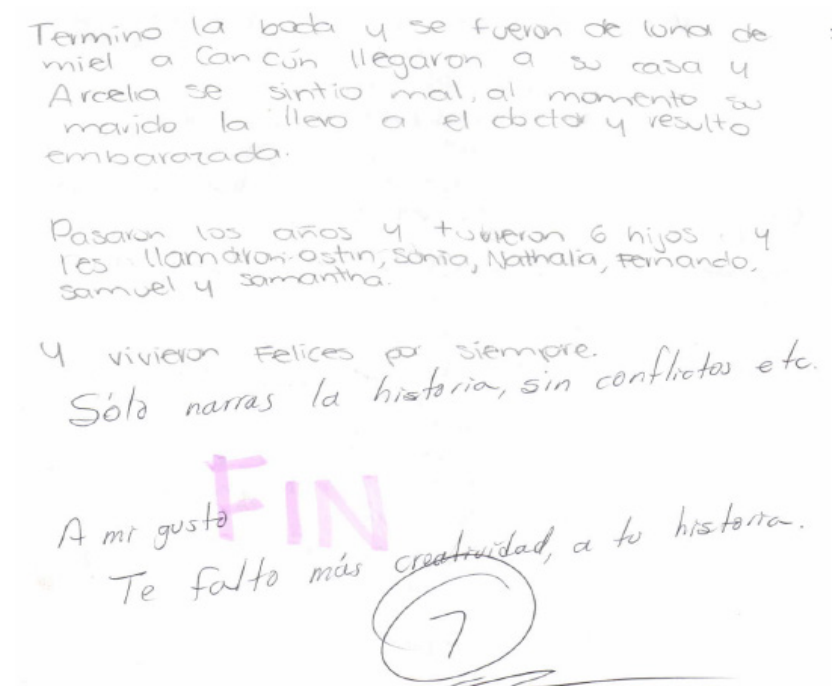 Termino la boda y se fueron de luna de
miel a Can cún llegaron a su casa y
Arcelia se sintio mal, al momento su
marido la llevo a el doctor y resulto
embarazada.
Pasaron los años y tuvieron 6 hijos y
les llamáron: ostin, Sonia, Nathalia, Fernando,
samuel y samantha.
Y vivieron Felices por siempre.
Sólo narras la historia, sin conflictos etc.
FIN
A mi gusto
Te falto más creatividad, a tu historia.
7